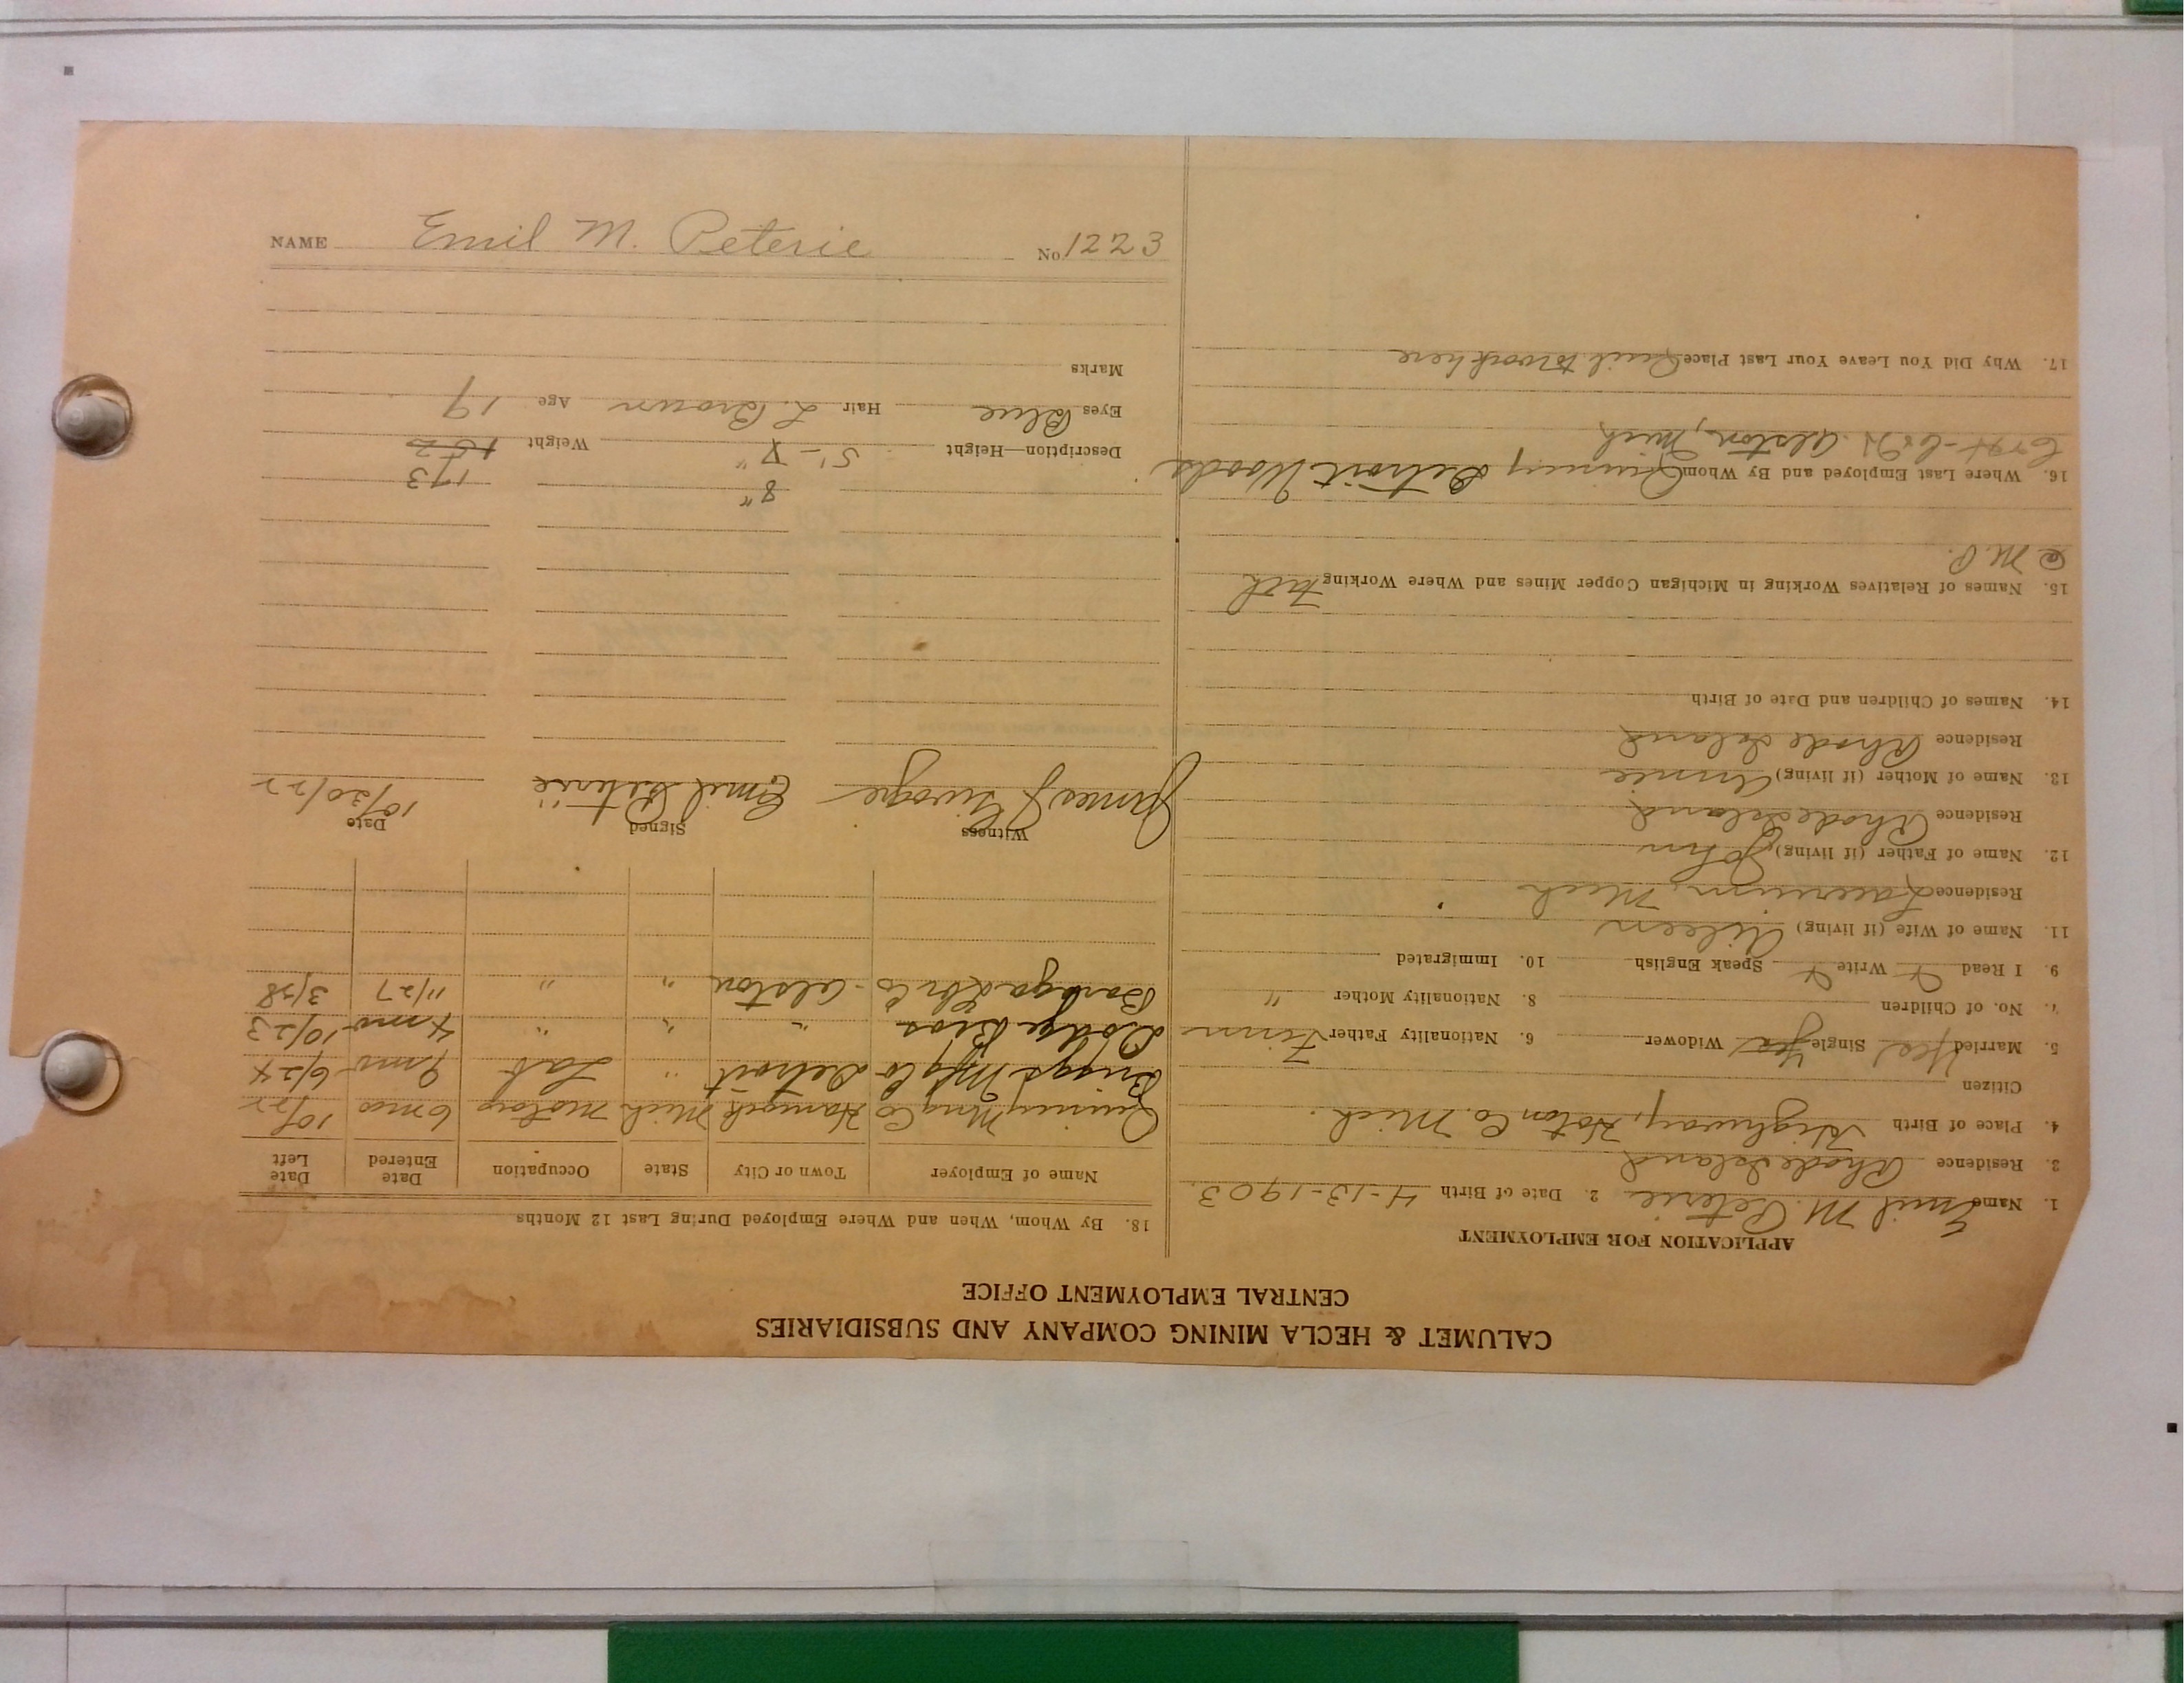 CALUMET & HECLA MINING COMPANY AND SUBSIDIARIES
CENTRAL EMPLOYMENT OFFICE
APPLICATION FOR EMPLOYMENT
1. Name Emil M. Peterie 2. Date of Birth 4-13-1903
3. Residence Rhode Island
4. Place of Birth Highway, Hoton Co. Mich.
Citizen
5. Married Yes Single Yes Widower 6. Nationality Father Finn
7. No. of Children 8. Nationality Mother "
9. I Read Write Speak English 10. Immigrated
11. Name of Wife (if living) Aileen
Residence Laurium, Mich
12. Name of Father (if living) John
Residence Rhode Island
13. Name of Mother (if living) Annie
Residence Rhode Island
14. Names of Children and Date of Birth
15. Names of Relatives Working in Michigan Copper Mines and Where Working
M.P.
16. Where Last Employed and By Whom Quincy Detroit Woods
Alston, Mich
17. Why Did You Leave Your Last Place Quit to work here
18. By Whom, When and Where Employed During Last 12 Months
Name of Employer Town or City State Occupation Date Entered Date Left
Quincy Mng Co Hancock Mich Motory 6 mos 10/22
Briggs Mfg Co Detroit " Lab 9 mos 6/24
Dodge Bros " " " 4 mos 10/23
Baraga Lbr Co Alston " " 11/27 3/28
Witness Signed Date
James J Emil Peterie 10/30/22
8" 173
Description—Height 5'-7" Weight 152
Eyes Blue Hair L. Brown Age 19
Marks
NAME Emil M. Peterie No. 1223